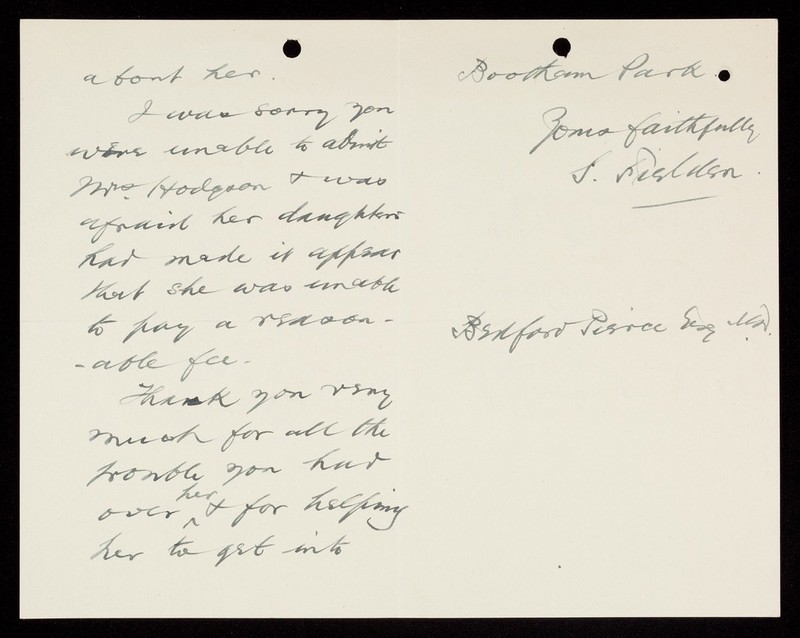 about her.
I was sorry you
were unable to admit
Mrs. Hodgson & was
afraid her daughters
had made it appear
that she was unable
to pay a reason-
-able fee.
Thank you very
much for all the
trouble you had
over her & for helping
her to get into
Bootham Park.
Yours faithfully
S. Fielden.
Bedford Pierce Esq M.D.